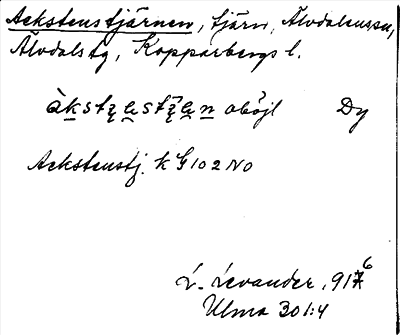 Aekstenstjärnen, tjärn, Älvdalens sn,
Älvdals tg, Kopparbergs l.
oböjl Dy
Aekstenstj. k G 102 NO
L. Levander, 1916
Ulma 301:4